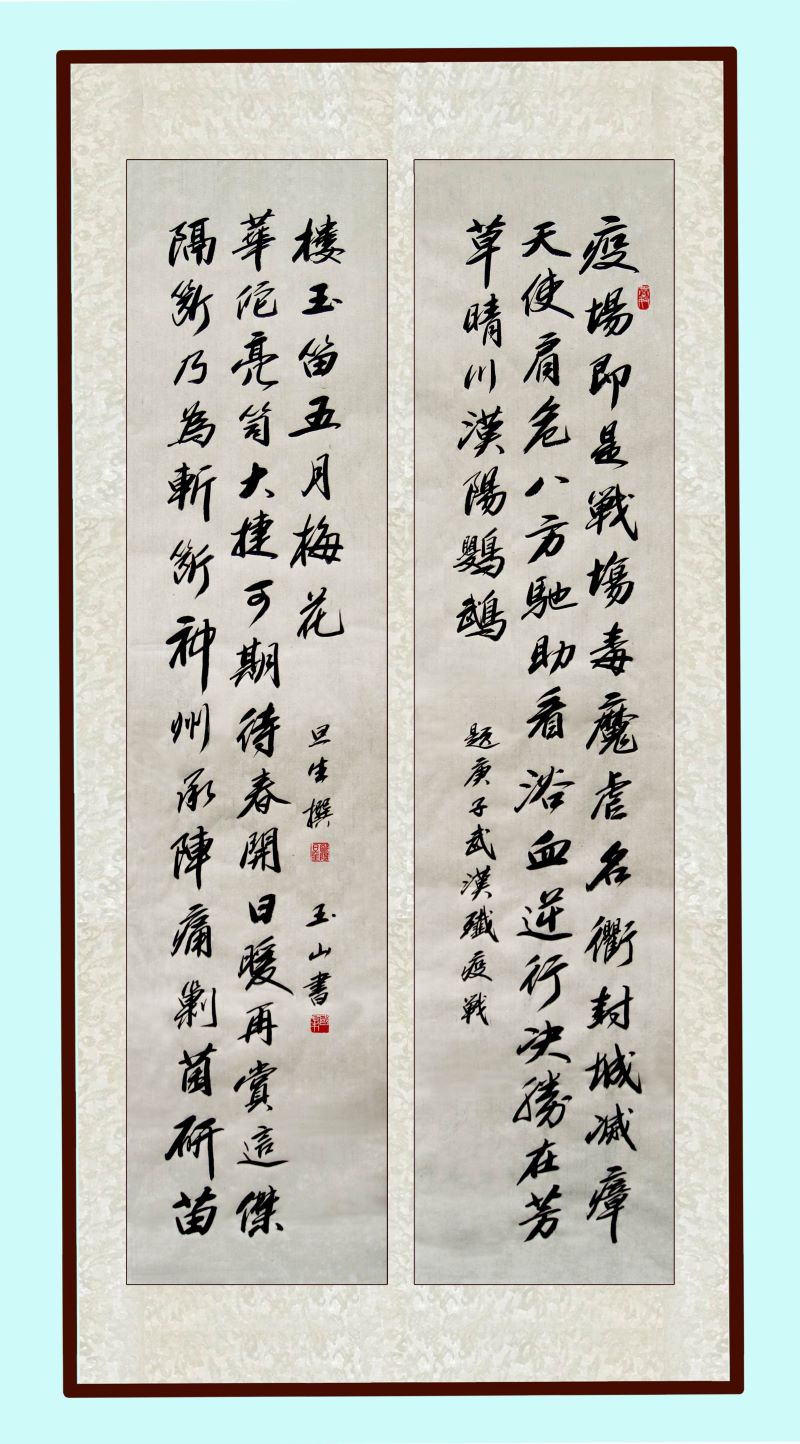 疫場即是戦場毒魔虐名衢封城滅瘴
天使肩危八方馳助看浴血逆行决勝在芳
草晴川漢陽鸚鵡
題庚子武漢殲疫戦
隔断乃為斬断神州承陣痛剿菌研苗
華佗亮笥大捷可期待春開日暖再賞這傑
楼玉笛五月梅花
旦生撰
玉山書